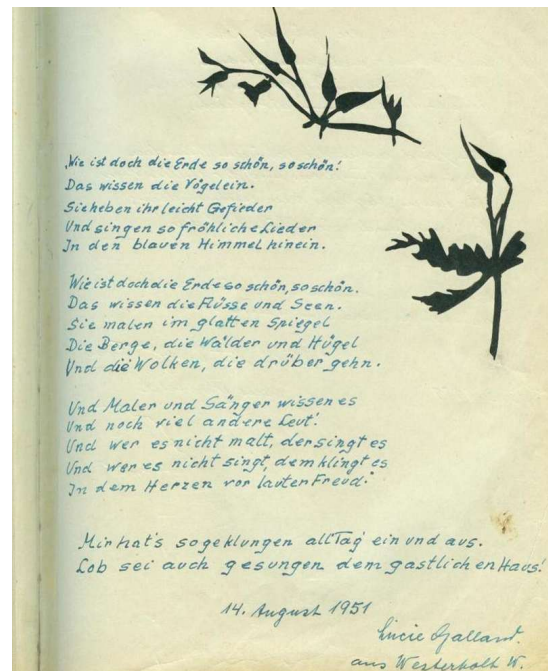 Wie ist doch die Erde so schön, so schön!
Das wissen die Vögelein.
Sie heben ihr leicht Gefieder
Und singen so fröhliche Lieder
In den blauen Himmel hinein.
Wie ist doch die Erde so schön, so schön.
Das wissen die Flüsse und Seen.
Sie malen im glatten Spiegel
Die Berge, die Wälder und Hügel
Und die Wolken, die drüber gehn.
Und Maler und Sänger wissen es
Und noch viel andere Leut'.
Und wer es nicht malt, der singt es
Und wer es nicht singt, dem klingt es
In dem Herzen vor lauter Freud.
Mir hat's so geklungen all Tag ein und aus.
Lob sei auch gesungen dem gastlichen Haus!
14. August 1951
Lucie Galland.
aus Westerholt W.